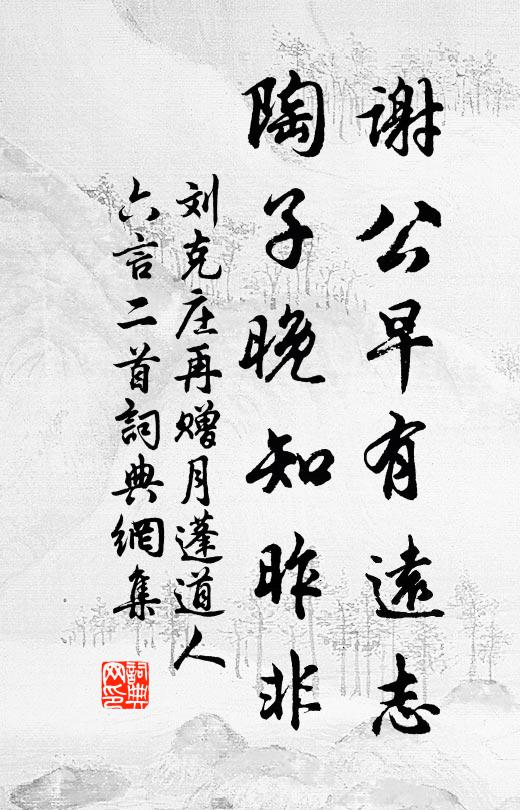 谢公早有遠志
陶子晚知昨非
刘克庄再赠月蓬道人
六言二首詞典網集
詞典
网印